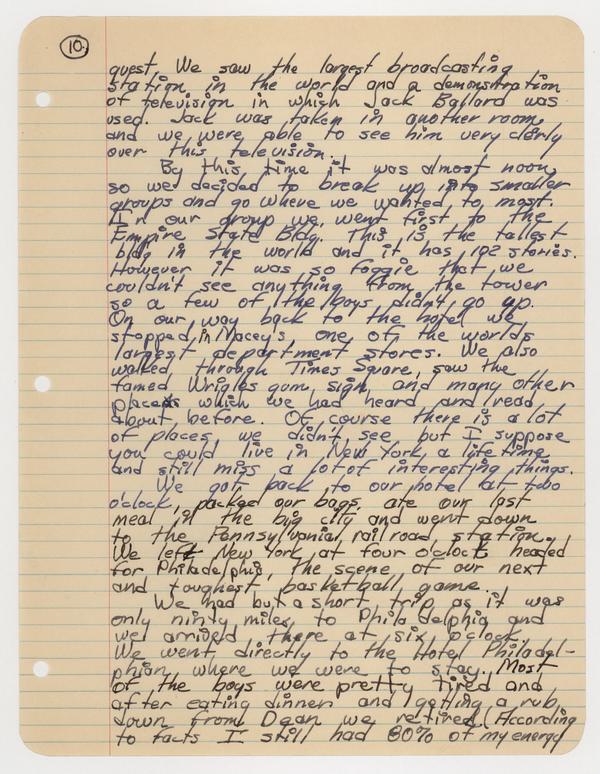 10.
quest. We saw the largest broadcasting
station in the world and a demonstration
of television in which Jack Ballord was
used. Jack was taken in another room
and we were able to see him very clerly
over this television.
By this time it was almost noon,
so we decided to break up into smaller
groups and go where we wanted to, most.
In our group we went first to the
Empire State Bldg. This is the tallest
bldg in the world and it has 102 stories.
However it was so foggie that we
couldn't see anything from the tower
so a few of the boys didn't go up.
On our way back to the hotel we
stopped in Macey's, one of the worlds
largest department stores. We also
walked through Times Square, saw the
famed Wrigles gum sign, and many other
places which we had heard and read
about before. Of course there is a lot
of places we didn't see but I suppose
you could live in New York a life time
and still miss a lot of interesting things.
We got back to our hotel at two
o'clock, packed our bags, ate our last
meal in the big city and went down
to the Pennsylvania railroad station.
We left New York at four o'clock headed
for Philadelphia, the scene of our next
and toughest basketball game.
We had but a short trip as it was
only ninty miles to Philadelphia and
we arrived there at six o'clock.
We went directly to the Hotel Philadel-
phian where we were to stay. Most
of the boys were pretty tired and
after eating dinner and getting a rub
down from Dean we retired. (According
to facts I still had 80% of my energy